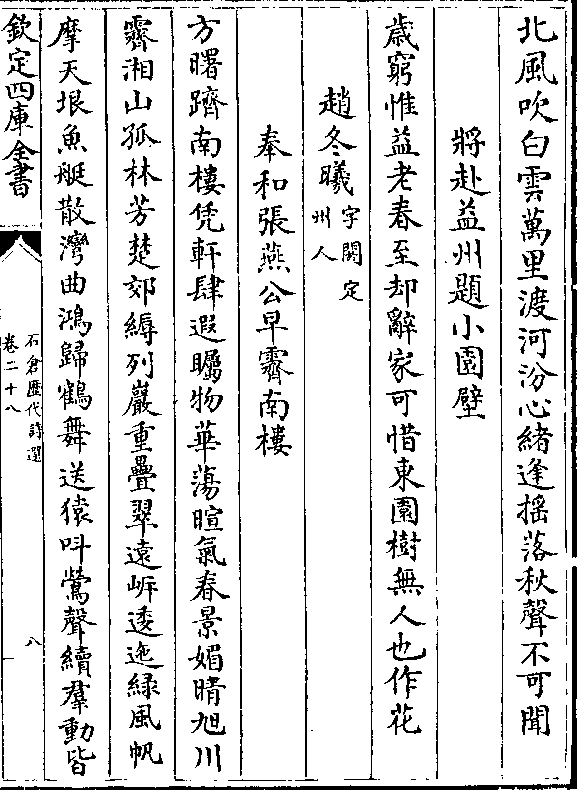 北風吹白雲萬里渡河汾心緒逢揺落秋聲不可聞
將赴益州題小園壁
歲窮惟益老春至却辭家可惜東園樹無人也作花
趙冬曦字闕定州人
奉和張燕公早霽南樓
方曙躋南樓凭軒肆遐矚物華蕩暄氣春景媚晴旭川
霽湘山孤林芳楚郊縟列巖重疊翠遠岍逶迤緑風帆
摩天垠魚艇散灣曲鴻歸鶴舞送猿叫鶯聲續羣動皆
欽定四庫全書
石倉歴代詩選
卷二十八
八